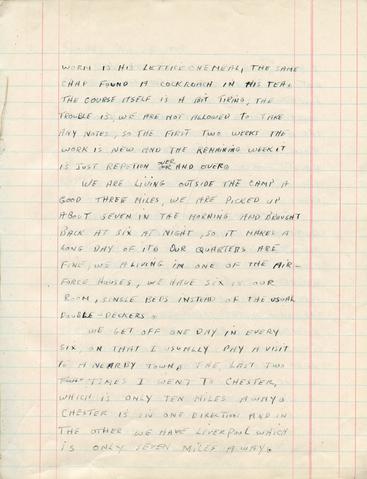 WORM IS HIS LETTICE ONE MEAL, THE SAME
CHAP FOUND A COCKROACH IN HIS TEA.
THE COURSE ITSELF IS A BIT TIRING, THE
TROUBLE IS, WE ARE NOT ALLOWED TO TAKE
ANY NOTES, SO THE FIRST TWO WEEKS THE
WORK IS NEW AND THE REMAINING WEEK IT
IS JUST REPETION OVER AND OVER.
WE ARE LIVING OUTSIDE THE CAMP A
GOOD THREE MILES, WE ARE PICKED UP
ABOUT SEVEN IN THE MORNING AND BROUGHT
BACK AT SIX AT NIGHT, SO IT MAKES A
LONG DAY OF IT. OUR QUARTERS ARE
FINE, WE A LIVING IN ONE OF THE AIR-
FORCE HOUSES, WE HAVE SIX IS OUR
ROOM, SINGLE BEDS INSTEAD OF THE USUAL
DOUBLE-DECKERS.
WE GET OFF ONE DAY IN EVERY
SIX, ON THAT I USUALLY PAY A VISIT
TO A NEARBY TOWN, THE LAST TWO
TIMES I WENT TO CHESTER,
WHICH IS ONLY TEN MILES AWAY.
CHESTER IS IN ONE DIRECTION AND IN
THE OTHER WE HAVE LIVERPOOL WHICH
IS ONLY SEVEN MILES AWAY.